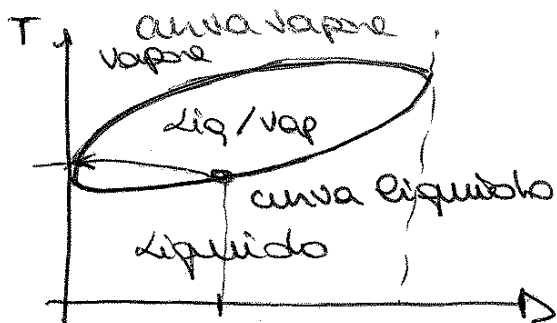 T
curva vapore
vapore
Liq/vap
curva liquido
Liquido